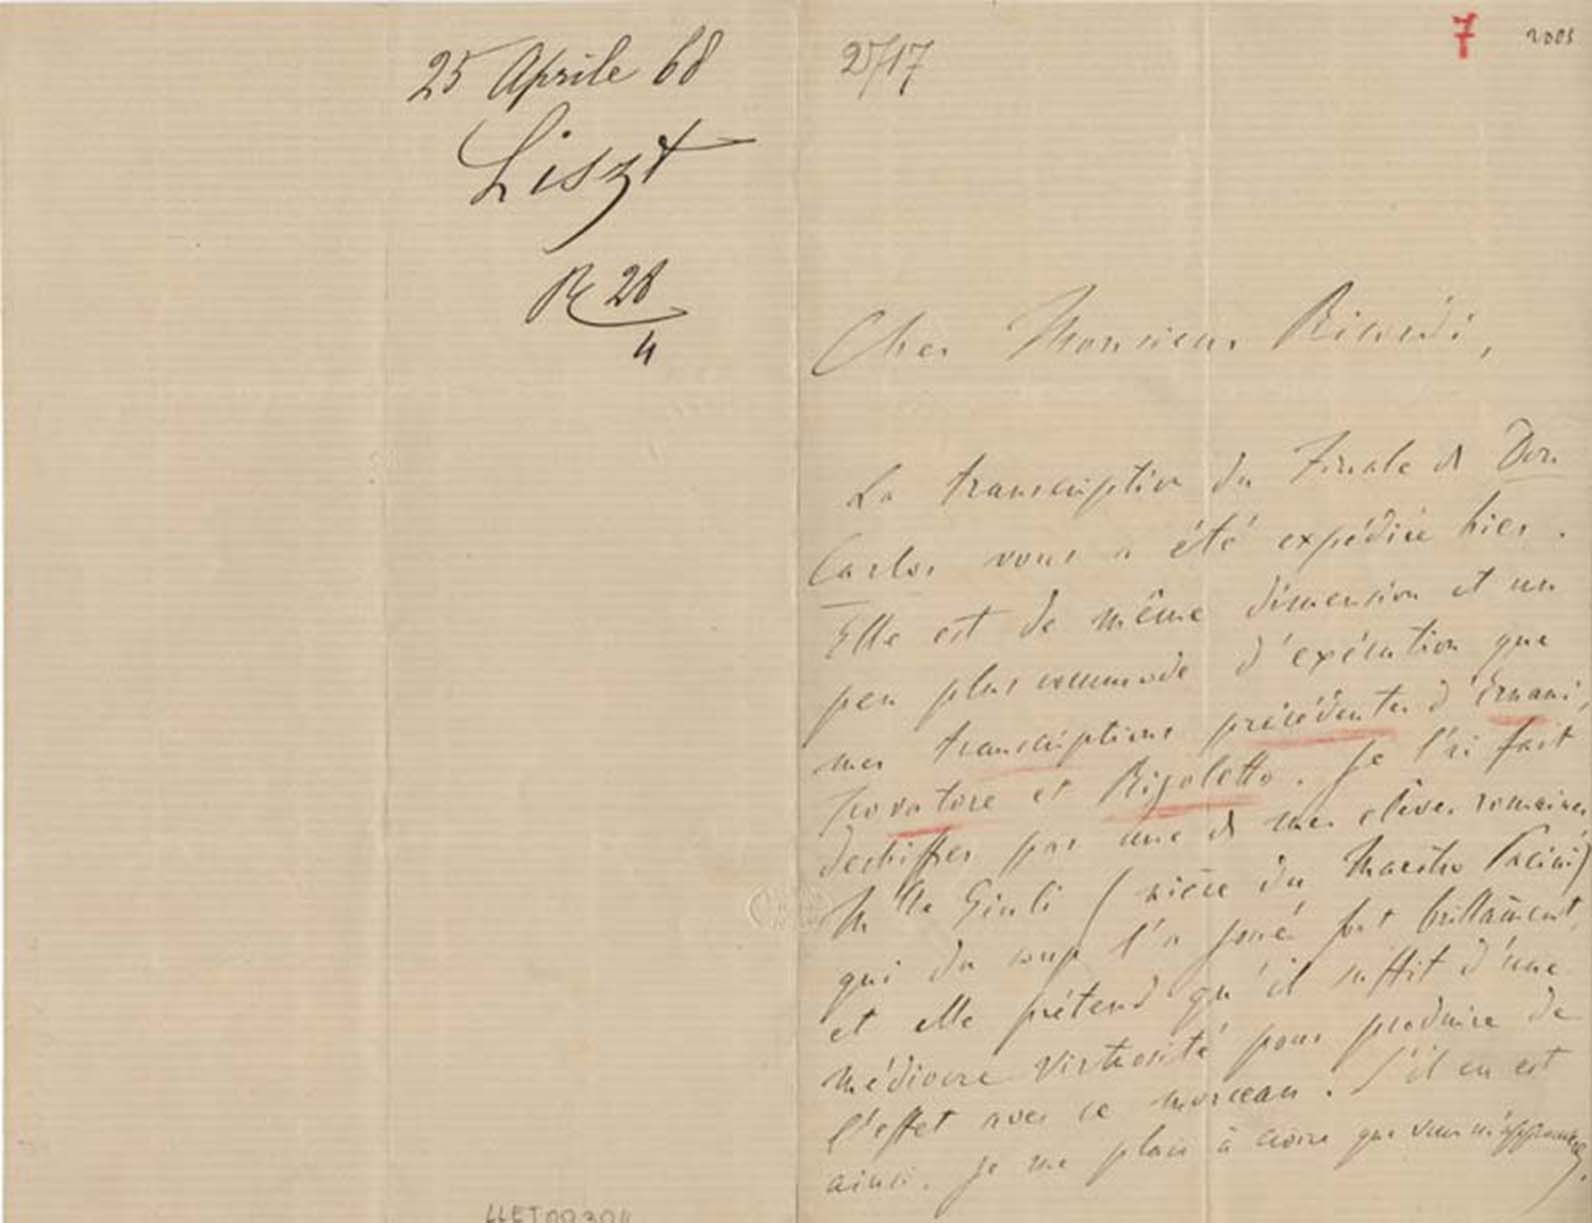 25 Aprile 68
Liszt
R 28
4
LLET00304
27/17
7
2003
Cher Monsieur Ricordi,
La transcription du Finale de Don
Carlos vous a été expédiée hier.
Elle est de même dimension et un
peu plus commode d'exécution que
mes transcriptions précédentes d'Ernani,
Trovatore et Rigoletto. Je l'ai fait
dechiffrer par une de mes élèves romaines
Mlle Giuli (nièce du Maestro Pacini)
qui du coup l'a joué fort brillament,
et elle prétend qu'il suffit d'une
médiocre virtuosité pour produire de
l'effet avec ce morceau. S'il en est
ainsi, je me plais à croire que vous